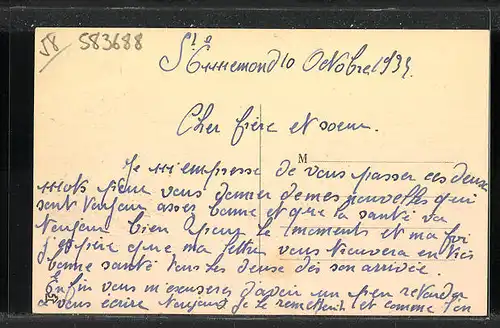 58 583688
10 Octobre 193
Cher frère et soeur.
M
Je m'empresse de vous passer ces deux
mots pour vous donner de mes nouvelles qui
sont toujour asses bonne et que la santé va
toujour bien pour le moments et ma foi
j'espère que ma lettre vous trouvera en très
bonne santé tous les deux dès son arrivée.
Enfin vous m'excuserez d'avoir un peu retarder
a vous écrire toujours je le remettait et comme l'on